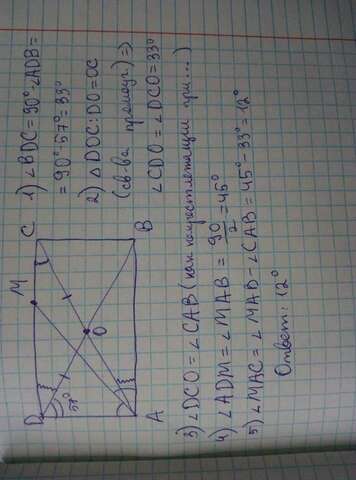 D
M
C
57°
O
A
B
1) ∠BDC = 90° - ∠ADB =
= 90° - 57° = 33°
2) △DOC: DO = OC
(св-ва прямоуг.) ⇒
∠CDO = ∠DCO = 33°
3) ∠DCO = ∠CAB (как накрестлежащии при...)
4) ∠ADM = ∠MAB = 90/2 = 45°
5) ∠MAC = ∠MAD - ∠CAB = 45° - 33° = 12°
Ответ: 12°